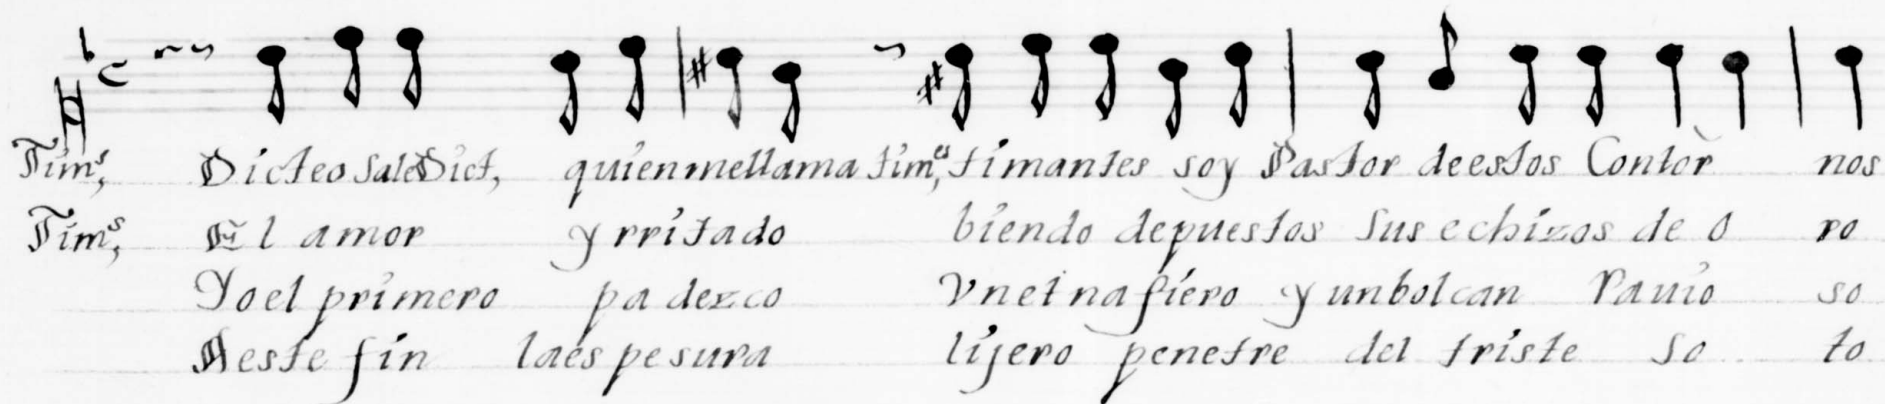 Tim.s, Dicteo Sale Dict, quien mellama tim.es, timantes soy Pastor deestos Contor nos
Tim.s, El amor yrritado biendo depuestos sus echizos de o ro
Yo el primero padezco Vnetna fiero y unbolcan Rauio so
A este fin laespesura lijero penetre del triste so to